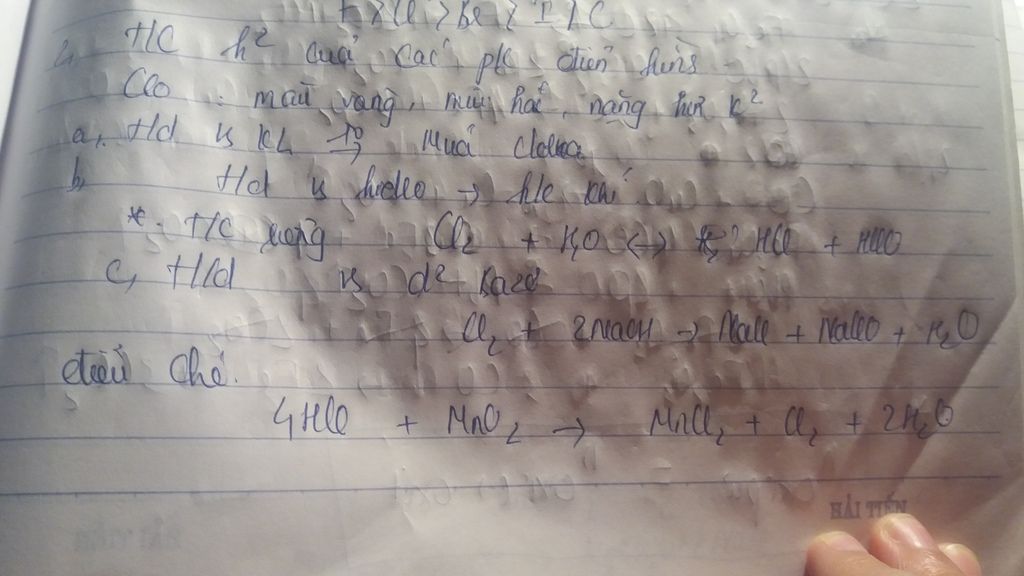 F > Cl > Br > I > C
2, T/C h² của các pk điển hình
Clo : màu vàng, mùi hắc, nặng hơn k²
a, T/d vs KL t⁰→ Muối clorua
b, T/d vs hidro → h/c khí
* T/C riêng Cl₂ + H₂O ↔ HCl + HClO
c, T/d vs d² bazơ
Cl₂ + 2NaOH → NaCl + NaClO + H₂O
điều chế.
4HCl + MnO₂ → MnCl₂ + Cl₂ + 2H₂O
HẢI TIẾN